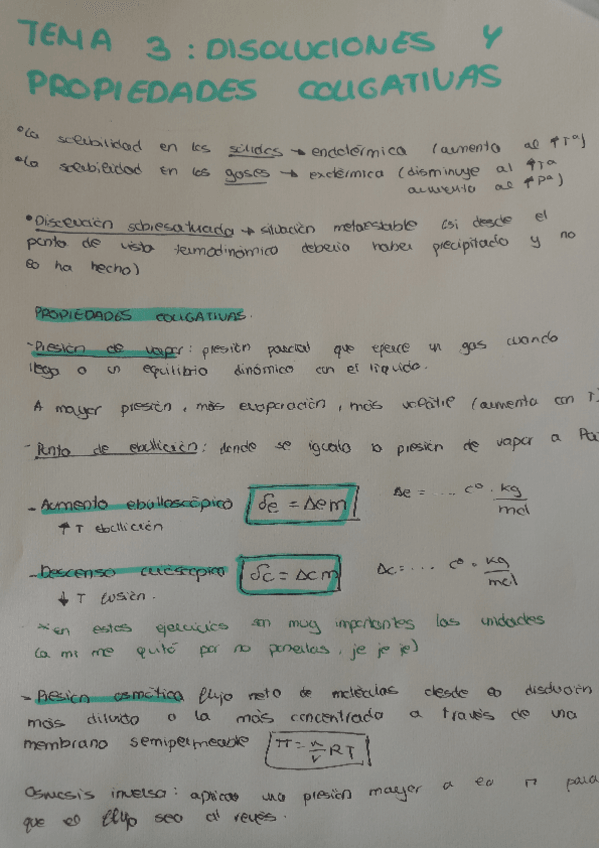 TEMA 3: DISOLUCIONES Y
PROPIEDADES COLIGATIVAS
•La solubilidad en los sólidos → endotérmica (aumenta al ↑Tª)
•La solubilidad en los gases → exotérmica (disminuye al ↑Tª
aumenta al ↑Pª)
•Disolución sobresaturada → situación metaestable (si desde el
punto de vista termodinámico debería haber precipitado y no
lo ha hecho)
PROPIEDADES COLIGATIVAS.
-Presión de vapor: presión parcial que ejerce un gas cuando
llega a un equilibrio dinámico con el líquido.
A mayor presión, más evaporación, más volátil (aumenta con T)
-Punto de ebullición: donde se iguala la presión de vapor a Pa
-Aumento ebulloscópico δe = Δem Δe = ... Cº · kg/mol
↑ T ebullición
-Descenso crioscópico δc = Δcm Δc = ... Cº · kg/mol
↓ T fusión.
*en estos ejercicios son muy importantes las unidades
(a mi me quitó por no ponerlas, je je je)
-Presión osmótica flujo neto de moléculas desde la disolución
más diluida a la más concentrada a través de una
membrana semipermeable π = n/V RT
Osmosis inversa: aplicas una presión mayor a la π para
que el flujo sea al revés.